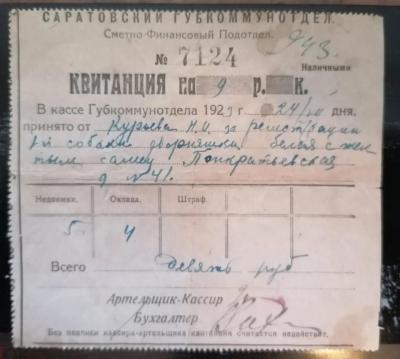 САРАТОВСКИЙ ГУБКОММУНОТДЕЛ.
Сметно-Финансовый Подотдел.
№ 7124
943.
Наличными
КВИТАНЦИЯ на 9 р. к.
В кассе Губкоммунотдела 1923 24/10 дня,
принято от Курьева Н.И. за регистрацию
1й собаки дворняшки белая с жел
тым самец Панкратьевская
д N 41.
Недоимки. Оклада. Штраф.
5 4
Всего девять руб
Артельщик-Кассир
Бухгалтер
Без подписи кассира-артельщика квитанция считается недействит.